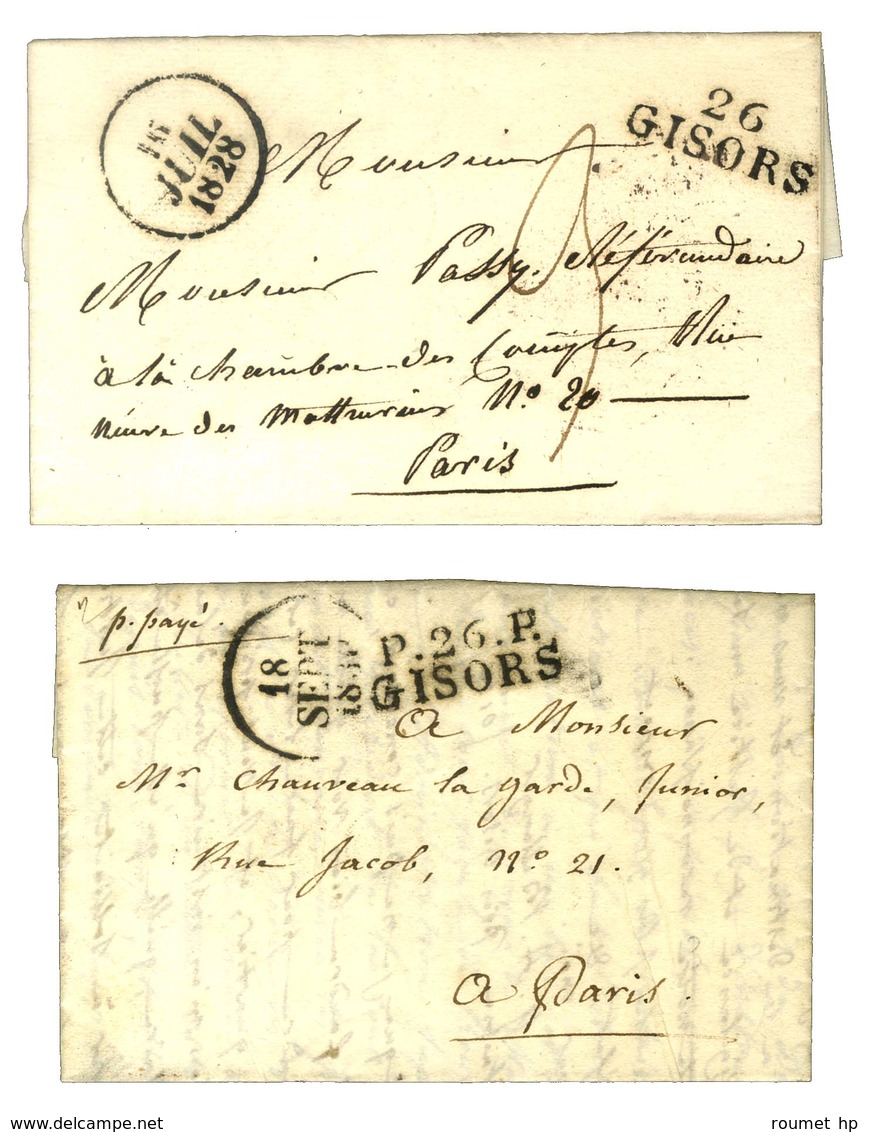 16
JUIL
1828
26
GISORS
3
Monsieur
Monsieur Passy, Référendaire
à la chambre des Comptes, Rue
neuve des Mathurins N.º 20
Paris
p. payé.
18
SEPT
P.26.P.
GISORS
A Monsieur
Mr. Chauveau la garde, Junior,
Rue Jacob, Nº 21.
A Paris.
delcampe.net
roumet hp